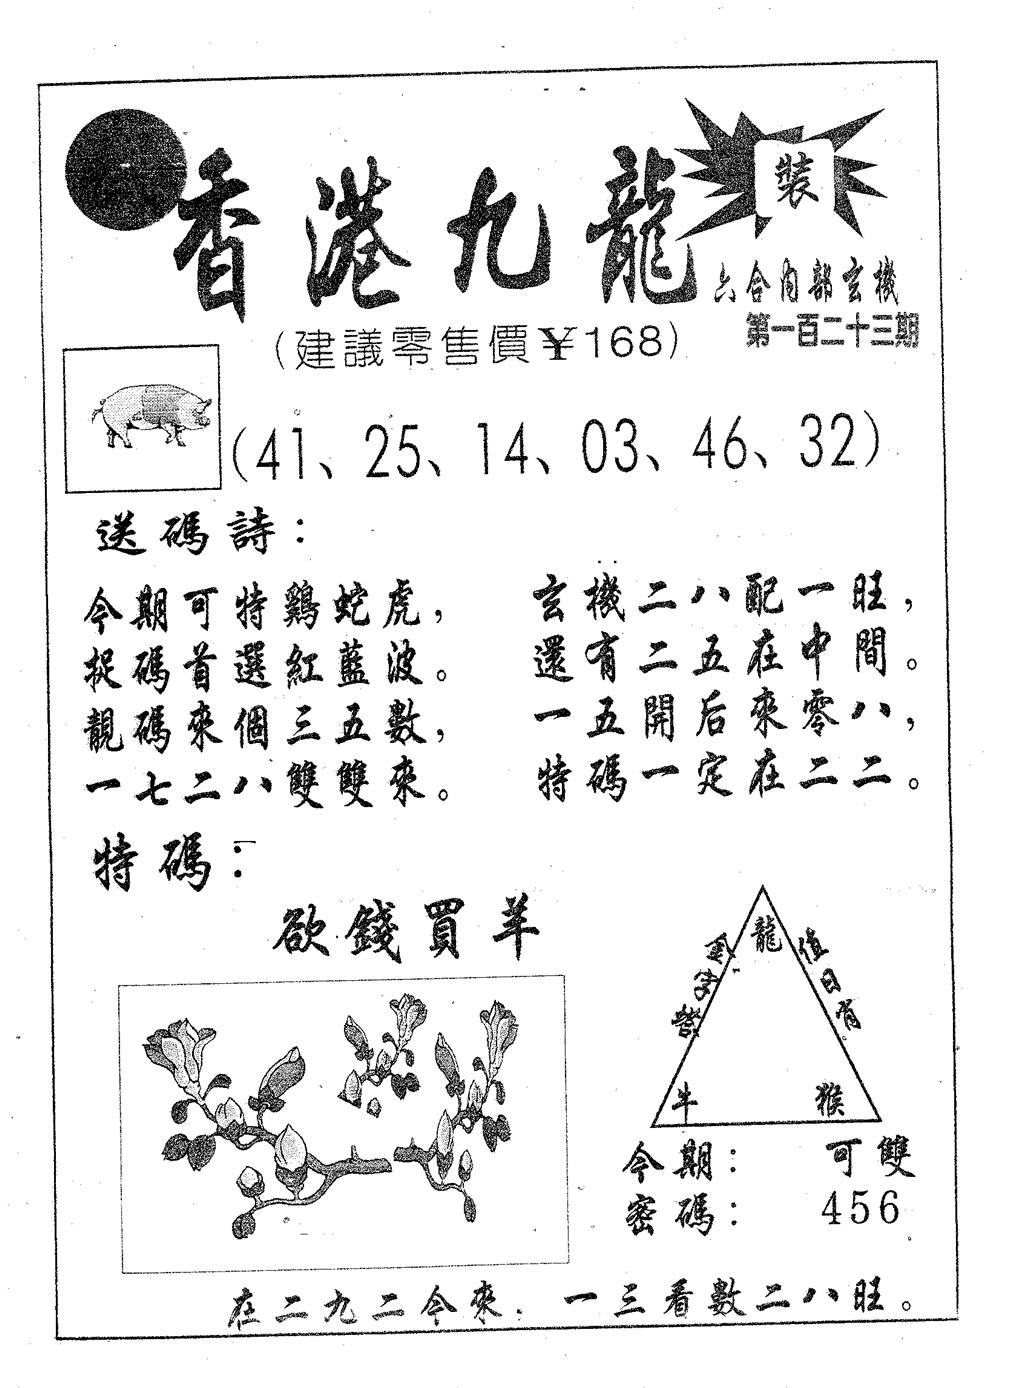 香港九龍
裝
六合內部玄機
第一百二十三期
(建議零售價¥168)
(41、25、14、03、46、32)
送碼詩：
今期可特鷄蛇虎，
捉碼首選紅藍波。
靚碼來個三五數，
一七二八雙雙來。
玄機二八配一旺，
還有二五在中間。
一五開后來零八，
特碼一定在二二。
特碼：
欲錢買羊
龍
值日肖
牛
猴
今期：可雙
密碼：456
在二九二今來．一三看數二八旺。